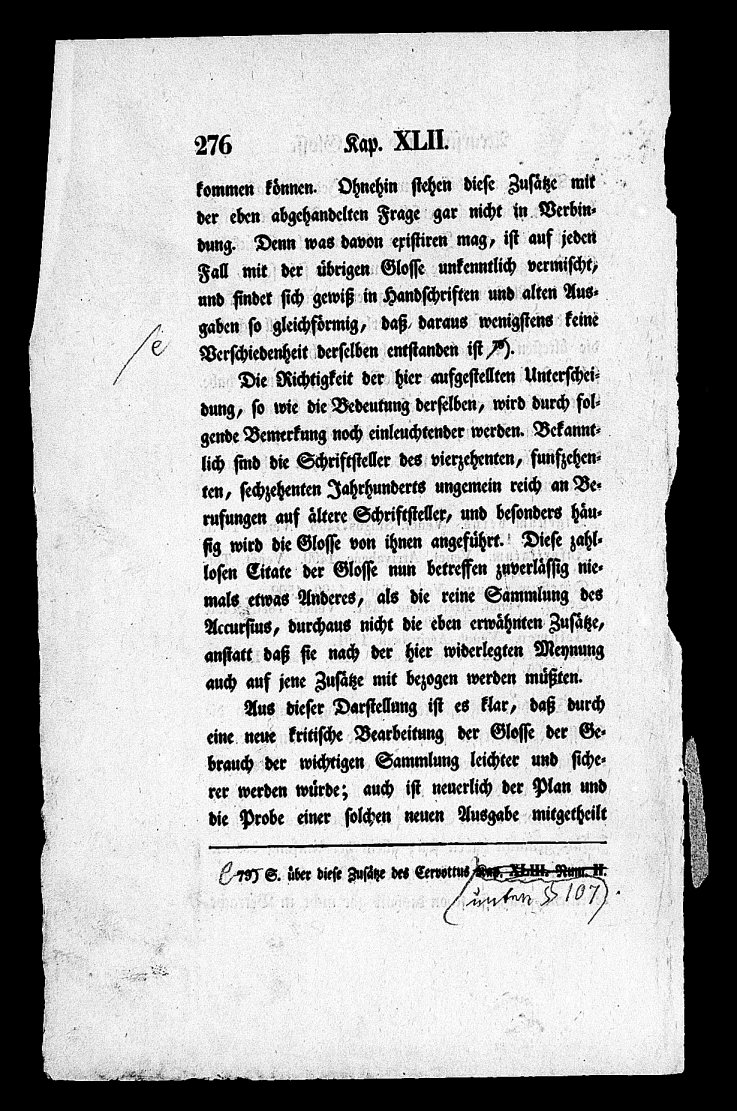 276 Kap. XLII.
kommen können. Ohnehin stehen diese Zusätze mit
der eben abgehandelten Frage gar nicht in Verbin-
dung. Denn was davon existiren mag, ist auf jeden
Fall mit der übrigen Glosse unkenntlich vermischt,
und findet sich gewiß in Handschriften und alten Aus-
gaben so gleichförmig, daß daraus wenigstens keine
Verschiedenheit derselben entstanden ist ⁷⁹).
e
Die Richtigkeit der hier aufgestellten Unterschei-
dung, so wie die Bedeutung derselben, wird durch fol-
gende Bemerkung noch einleuchtender werden. Bekannt-
lich sind die Schriftsteller des vierzehenten, funfzehen-
ten, sechzehenten Jahrhunderts ungemein reich an Be-
rufungen auf ältere Schriftsteller, und besonders häu-
fig wird die Glosse von ihnen angeführt. Diese zahl-
losen Citate der Glosse nun betreffen zuverlässig nie-
mals etwas Anderes, als die reine Sammlung des
Accursius, durchaus nicht die eben erwähnten Zusätze,
anstatt daß sie nach der hier widerlegten Meynung
auch auf jene Zusätze mit bezogen werden müßten.
Aus dieser Darstellung ist es klar, daß durch
eine neue kritische Bearbeitung der Glosse der Ge-
brauch der wichtigen Sammlung leichter und siche-
rer werden würde; auch ist neuerlich der Plan und
die Probe einer solchen neuen Ausgabe mitgetheilt
e 79) S. über diese Zusätze des Cervottus Kap. XLIII. Num. II.
(unten § 107).